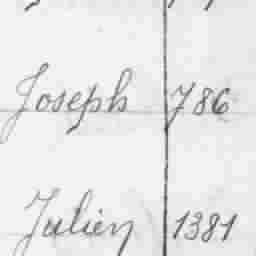 Joseph 786
Julien 1381